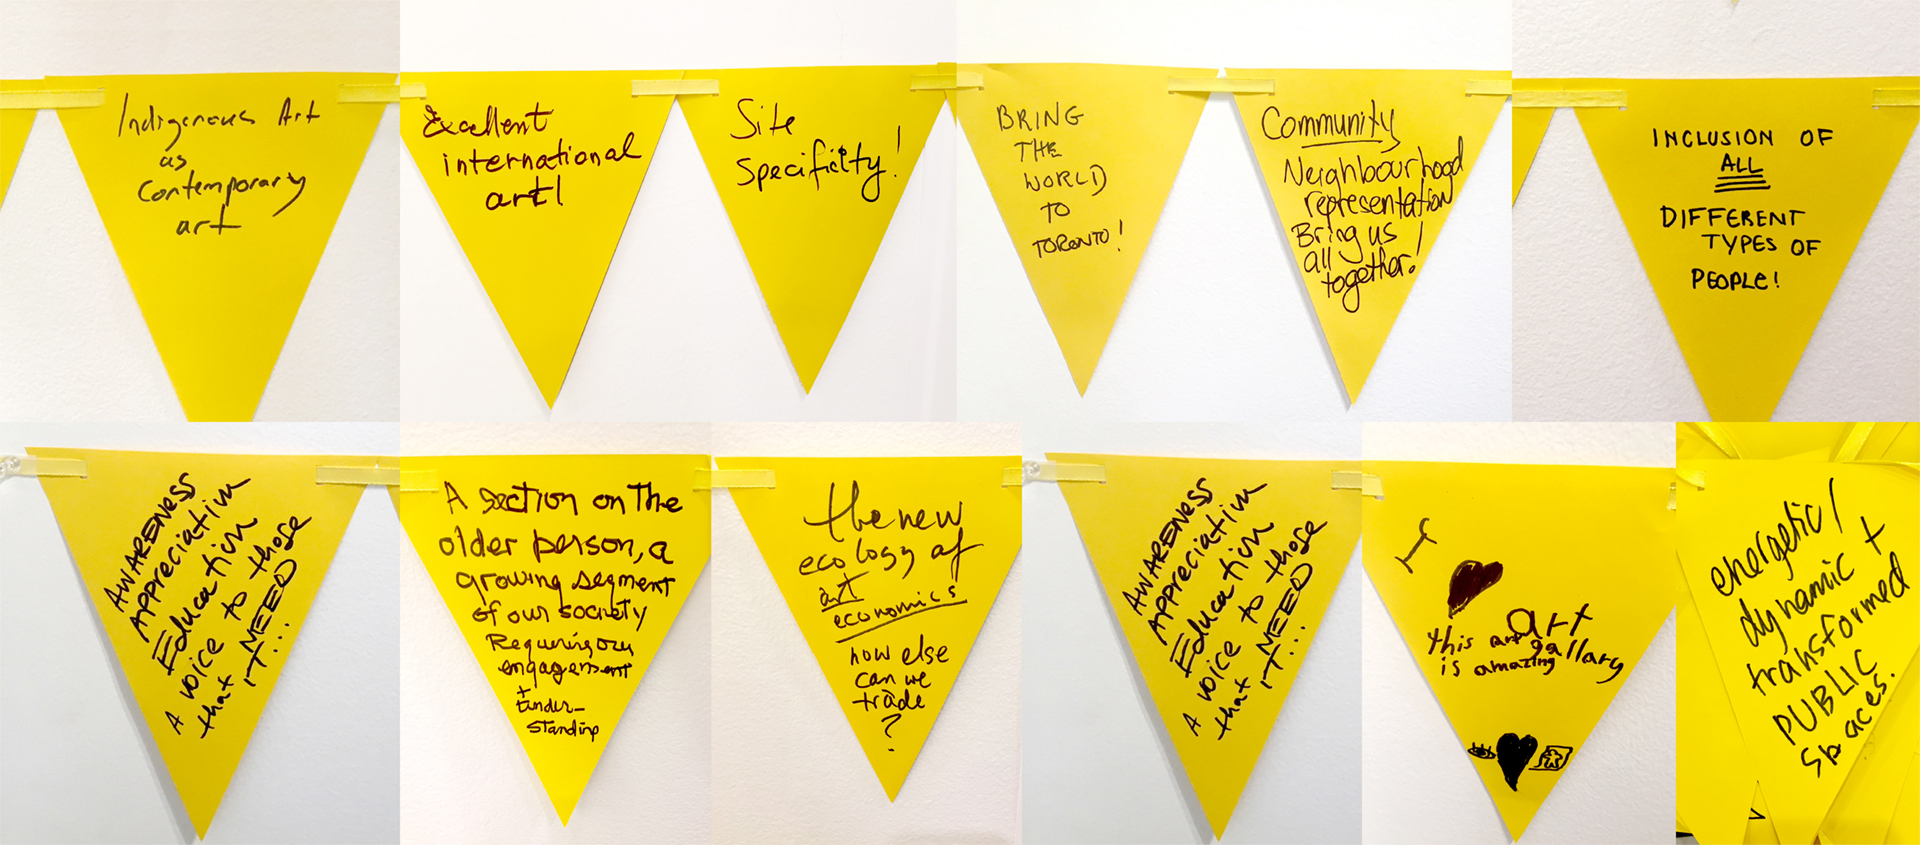 Indigenous Art
as
Contemporary
art
Excellent
international
art!
Site
Specificity!
BRING
THE
WORLD
TO
TORONTO!
Community
Neighbourhood
representation
Bring us
all
together!
INCLUSION OF
ALL
DIFFERENT
TYPES OF
PEOPLE!
AWARENESS
Appreciation
Education
A voice to those
that NEED
IT...
A section on the
older person, a
growing segment
of our society
Requiring our
engagement
+ under-
standing
the new
ecology of
art
economics
how else
can we
trade
?
AWARENESS
Appreciation
Education
A voice to those
that NEED
IT...
I
art
this art gallary
is amazing
energetic/
dynamic +
transformed
PUBLIC
spaces.